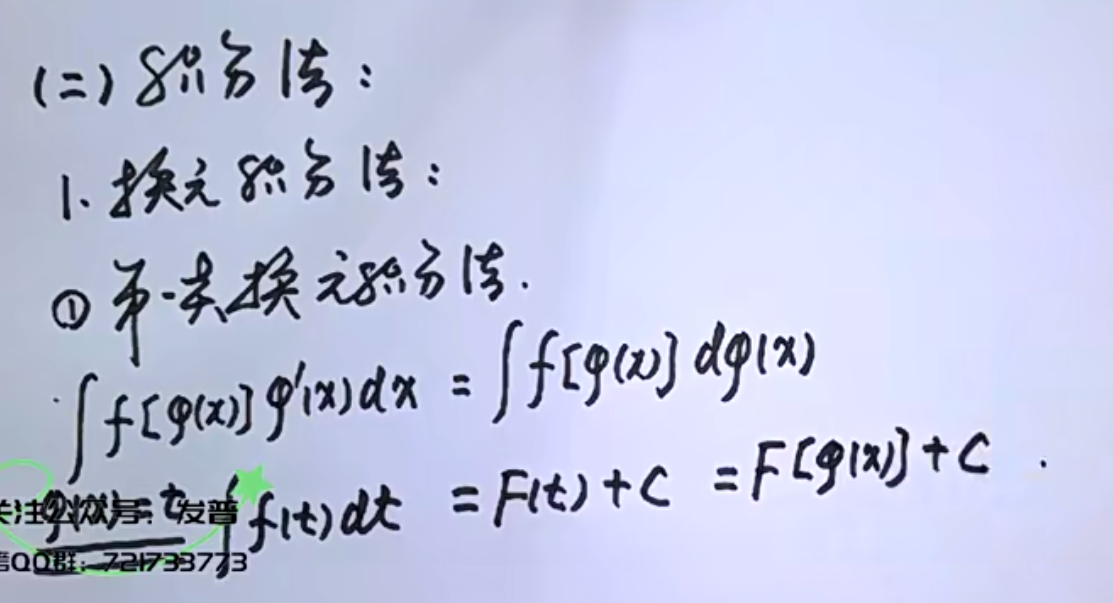 (二) 积分法:
1. 换元积分法:
① 第一类换元积分法.
∫f[φ(x)]φ'(x)dx = ∫f[φ(x)]dφ(x)
φ(x)=t ∫f(t)dt = F(t)+C = F[φ(x)]+C.
关注公众号：发普
QQ群：721733773